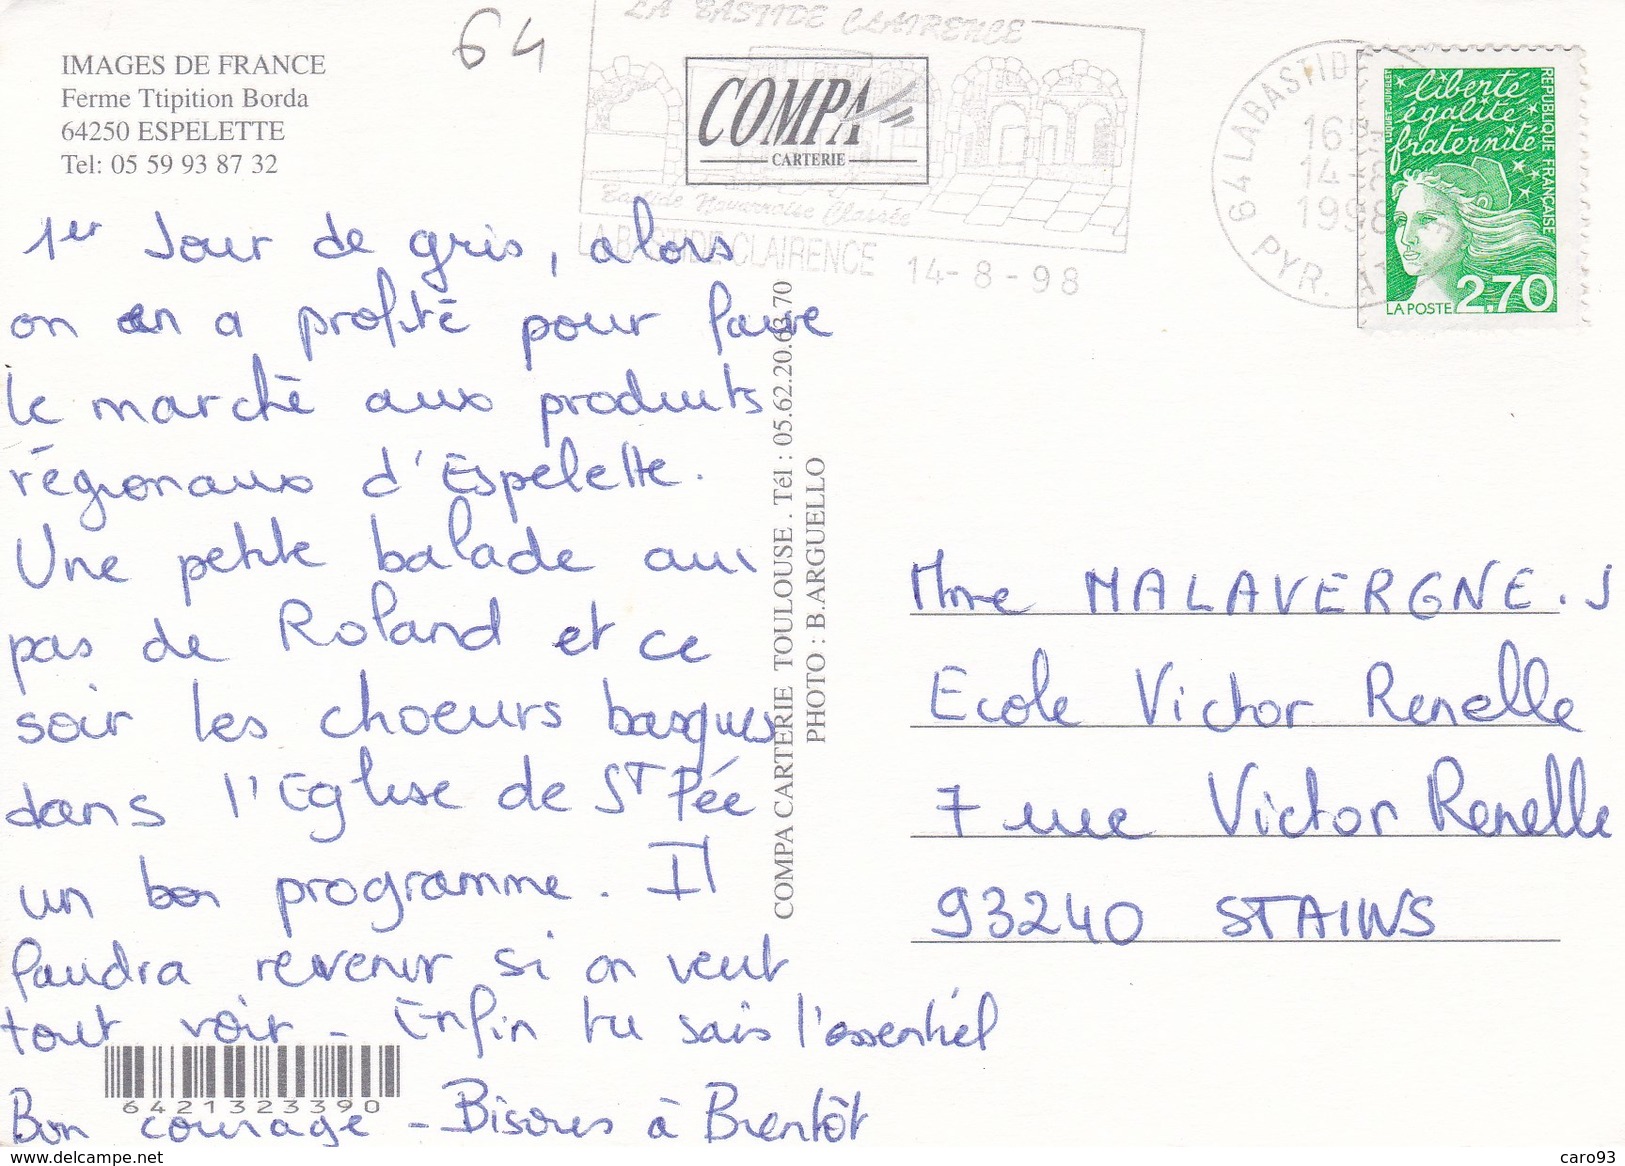 64
IMAGES DE FRANCE
Ferme Ttipition Borda
64250 ESPELETTE
Tel: 05 59 93 87 32
LA BASTIDE CLAIRENCE
COMPA
CARTERIE
Bastide Navarraise Classée
LA BASTIDE CLAIRENCE 14-8-98
64 LABASTIDE
16H
14-8
1998
PYR. AT
liberté
égalité
fraternité
REPUBLIQUE FRANÇAISE
LUQUET-JUMELET
LA POSTE 2,70
1er Jour de gris, alors
on en a profité pour faire
le marché aux produits
régionaux d'Espelette.
Une petite balade aux
pas de Roland et ce
soir les choeurs basques
dans l'Eglise de ST Pée
un bon programme. Il
faudra revenir si on veut
tout voir - Enfin tu sais l'essentiel
Bon courage - Bisous à Bientôt
6421323390
COMPA CARTERIE TOULOUSE . Tél : 05.62.20.63.70
PHOTO : B.ARGUELLO
Mme MALAVERGNE.J
Ecole Victor Renelle
7 rue Victor Renelle
93240 STAINS
www.delcampe.net
caro93